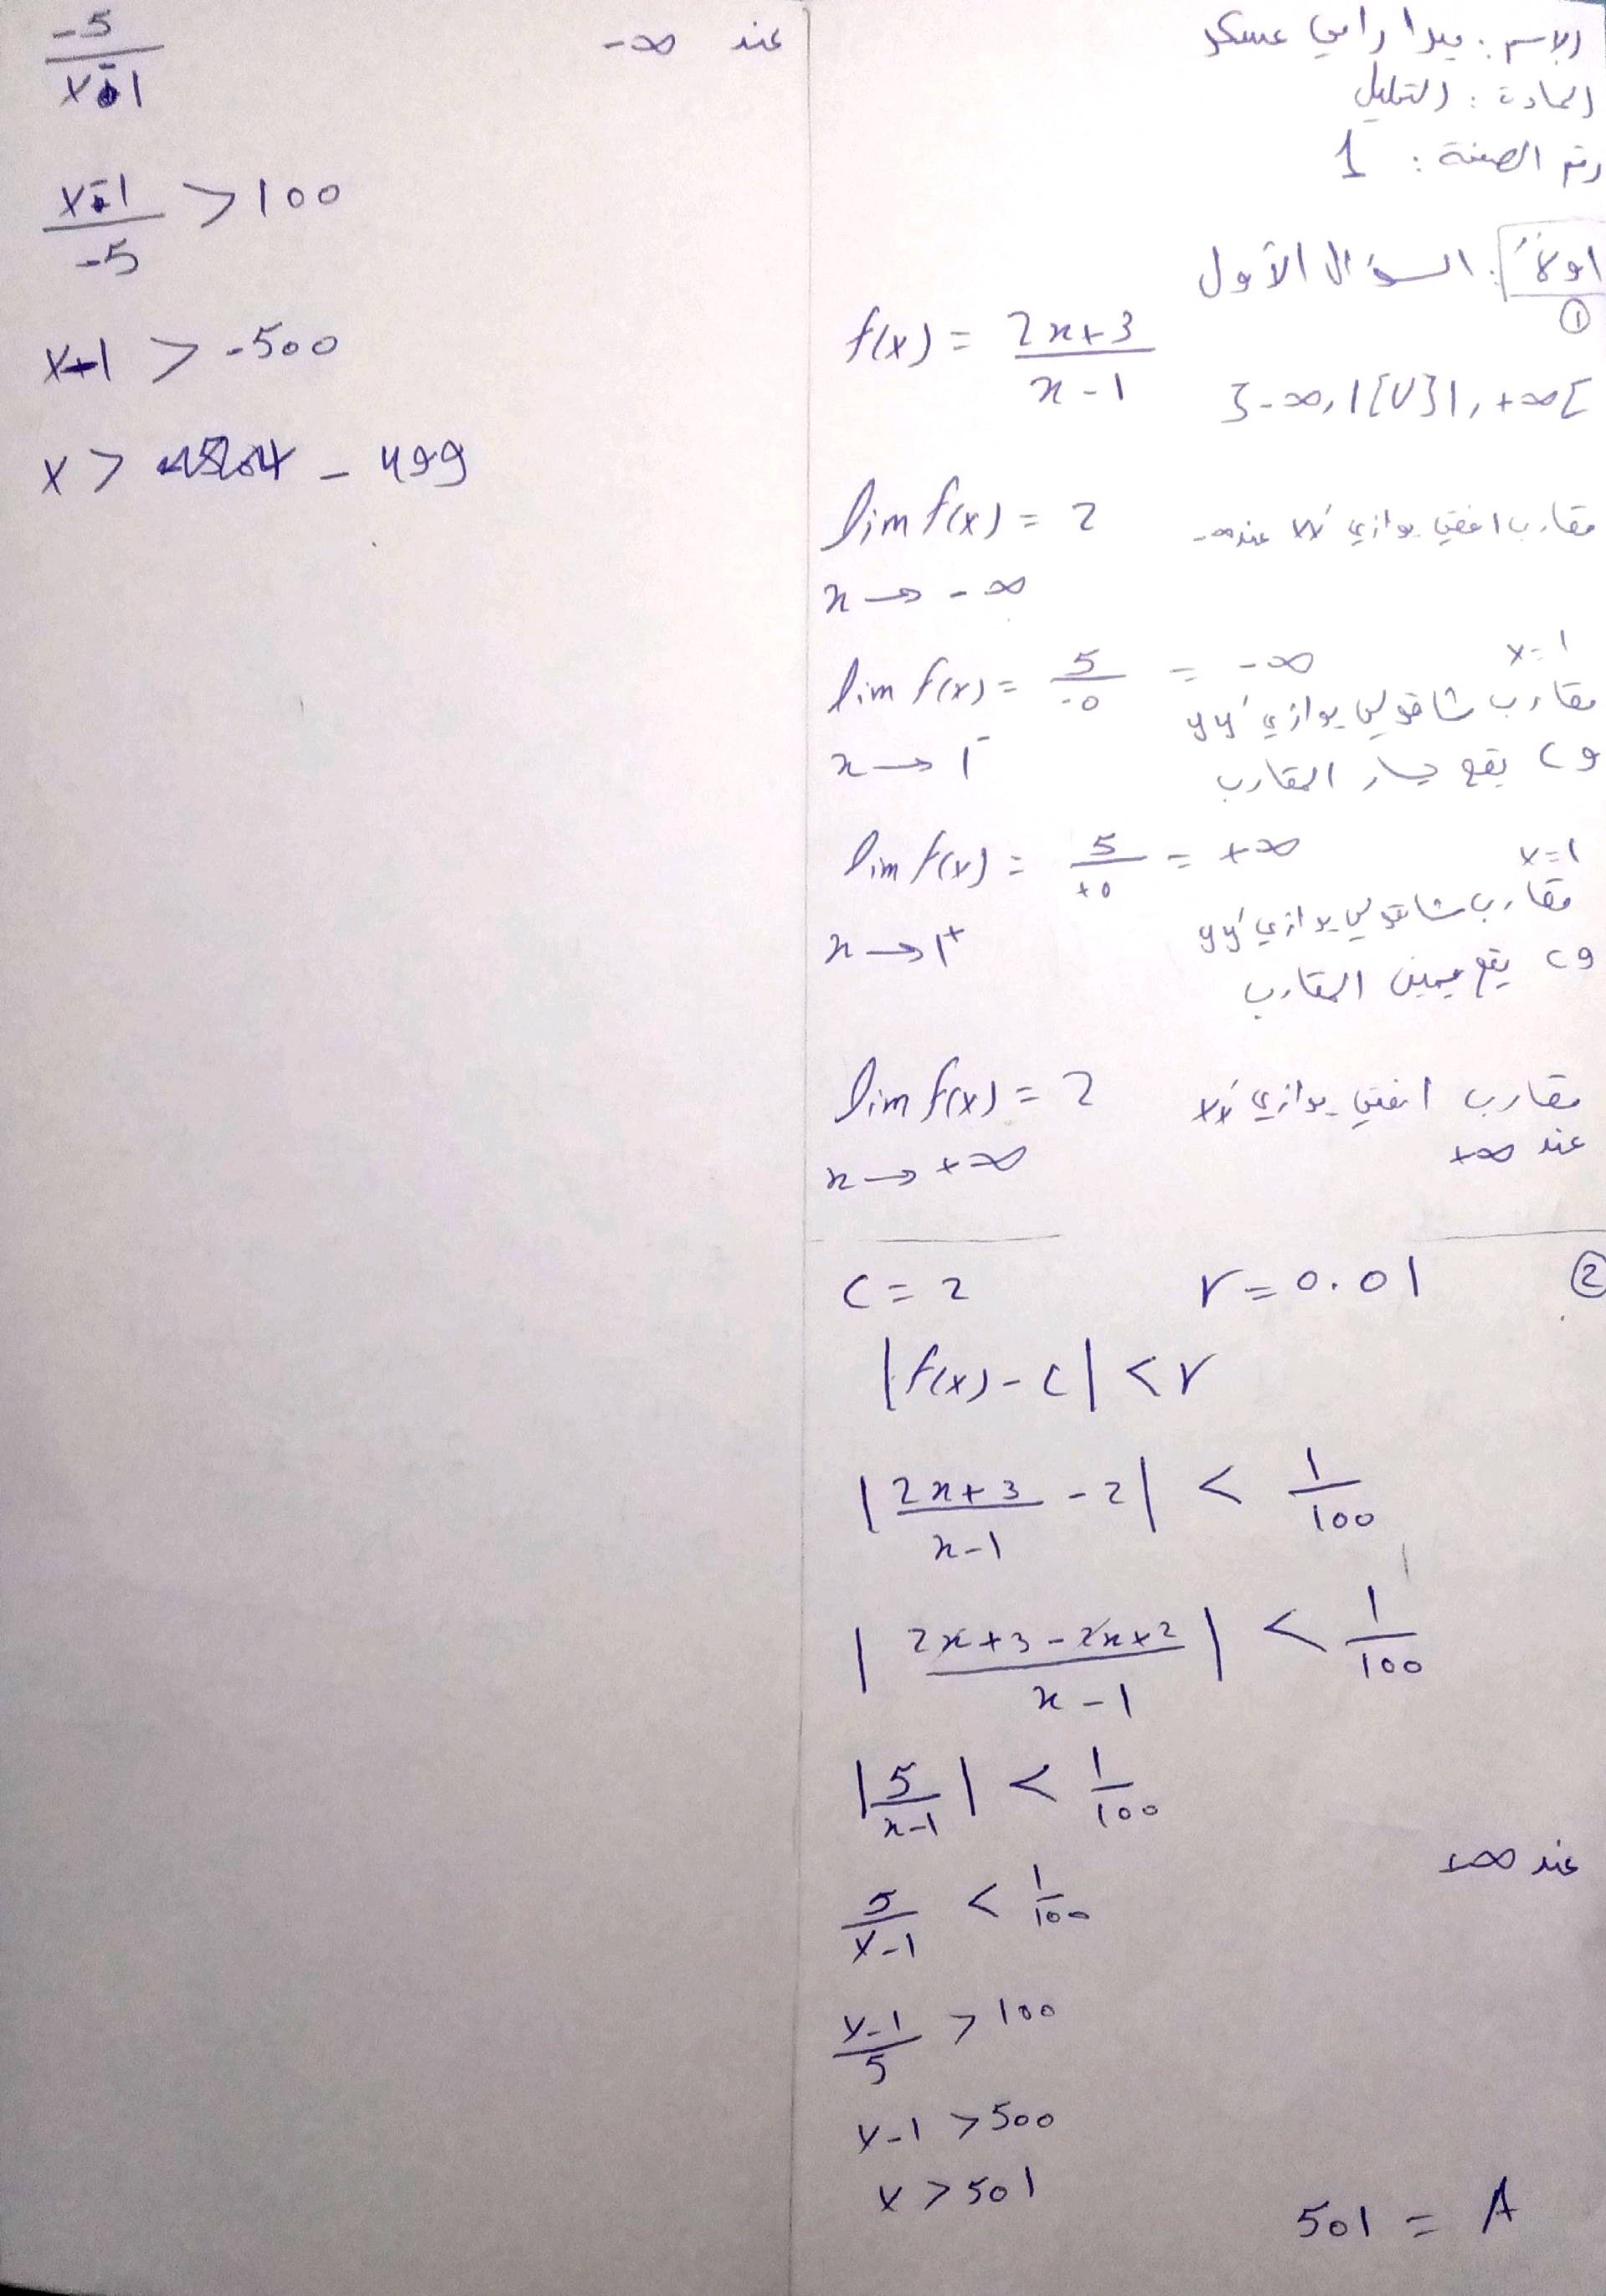 الاسم : ميرا رامي عسكر
المادة : التحليل
رقم الصفحة : 1
اولاً : السؤال الأول
①
f(x) = \frac{2x+3}{x-1} ]-∞, 1[ U ]1, +∞[
lim f(x) = 2 مقارب افقي يوازي xx' عند -∞
x → -∞
lim f(x) = \frac{5}{-0} = -∞ x=1
مقارب شاقولي يوازي yy'
x → 1^- و C يقع يسار المقارب
lim f(x) = \frac{5}{+0} = +∞ x=1
مقارب شاقولي يوازي yy'
x → 1^+ و C يقع يمين المقارب
lim f(x) = 2 مقارب افقي يوازي xx'
x → +∞ عند +∞
② r = 0.01 c = 2
|f(x) - c| < r
|\frac{2x+3}{x-1} - 2| < \frac{1}{100}
|\frac{2x+3-2x+2}{x-1}| < \frac{1}{100}
|\frac{5}{x-1}| < \frac{1}{100}
عند +∞
\frac{5}{x-1} < \frac{1}{100}
\frac{x-1}{5} > 100
x-1 > 500
x > 501
501 = A
عند -∞
\frac{-5}{x-1}
\frac{x-1}{-5} > 100
x-1 > -500
x > - 499